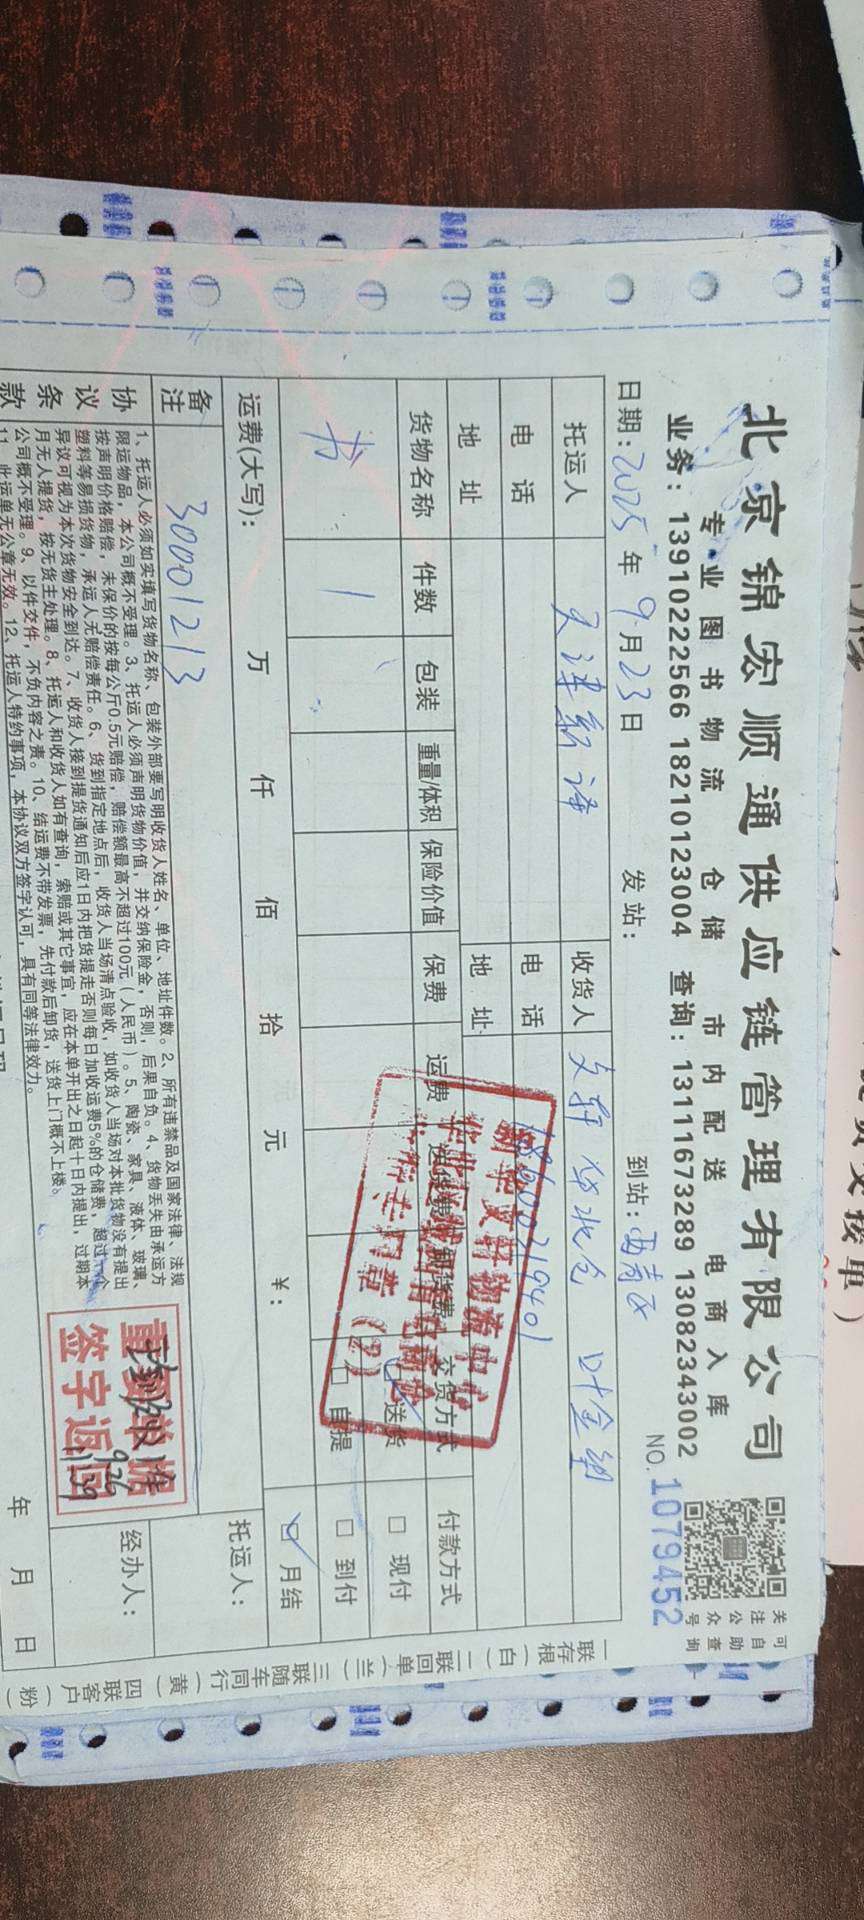 北京锦宏顺通供应链管理有限公司
专业图书物流 仓储 市内配送 电商入库
业务：13910222566 18210123004 查询：13111673289 13082343002
可自助查询
关注公众号
日期：2025年9月23日 发站： 到站：西青区 NO.1079452
托运人 天津新译 收货人 文轩华北仓 叶金钢
电话 电话 18600219401
地址 地址
货物名称 件数 包装 重量/体积 保险价值 保费 运费 送货费 卸货费 交货方式 付款方式
书 1 送货 自提 现付 到付 月结
新华文轩物流中心
运费(大写)： 万 仟 佰 拾 元 ¥：
备注 30001213 托运人：
协议条款
1、托运人必须如实填写货物名称、包装外部要写明收货人姓名、单位、地址件数。2、所有违禁品及国家法律、法规
限运物品，本公司概不受理。3、托运人必须声明货物价值，并交纳保险金，否则，后果自负。4、货物丢失由承运方
按声明价格赔偿，未保价的按每公斤0.5元赔偿，赔偿额最高不超过100元（人民币）。5、陶瓷、家具、液体、玻璃、
塑料等易损货物，承运人无赔偿责任。6、货到指定地点后，收货人当场清点验收，如收货人当场对本批货物没有提出
异议可视为本次货物安全到达。7、收货人接到提货通知后应1日内把货提走否则每日加收运费5%的仓储费，超过一个
月无人提货，按无货主处理。8、托运人和收货人如有查询，索赔或其它事宜，应在本单开出之日起十日内提出，过期本
公司概不受理。9、以件交件，不负内容之责。10、结运费不带发票，先付款后卸货，送货上门概不上楼。
11、此运单无公章无效。12、托运人特约事项，本协议双方签字认可，具有同等法律效力。
重要单据
签字返回
9.26
11:39
经办人：
年 月 日
一联存根（白） 二联回单（兰） 三联随车同行（黄） 四联客户（粉）